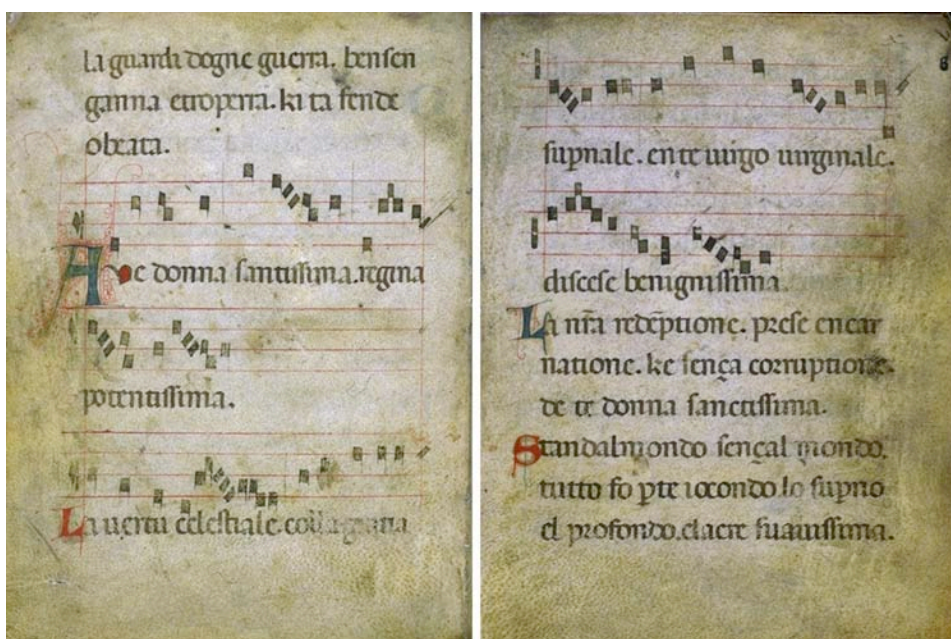 la guardi dogne guerra. bensen
ganna etroperra. ki ta fende
obeata.
Ave donna santissima. regina
potentissima.
La uertu celestiale. colla gratia
supnale. en te uirgo uirginale.
discese benignissima.
La nr̄a redēptione. prese encar
natione. ke sença corruptione.
de te donna sanctissima.
Standalmondo sençal mondo.
tutto fo pte iocondo. lo supno
el profondo. elaere suauissima.